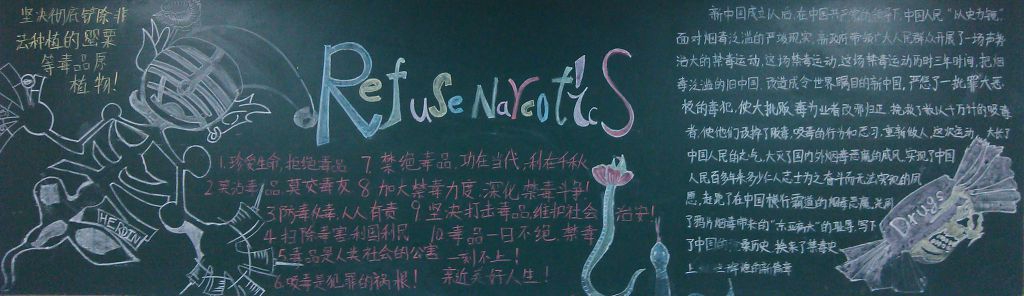 坚决彻底铲除非
法种植的罂粟
等毒品原
植物!
Refuse Narcotics
1.珍爱生命,拒绝毒品
2.吴为毒品,莫交毒友
3.防毒反毒,人人有责
4.扫除毒害,利国利民
5.毒品是人类社会的公害
6.吸毒是犯罪的祸根!
7.禁绝毒品,功在当代,利在千秋
8.加大禁毒力度,深化禁毒斗争!
9.坚决打击毒品,维护社会治安!
10.毒品一日不绝,禁毒
一刻不止!
亲近美好人生!
HEROIN
新中国成立以后,在中国共产党的领导下,中国人民"以史为镜",
面对烟毒泛滥的严峻现实,新政府带领广大人民群众开展了一场声势
浩大的禁毒运动,这场禁毒运动,这场禁毒运动历时三年时间,把烟
毒泛滥的旧中国,改造成令世界瞩目的新中国,严惩了一批罪大恶
极的毒犯,使大批贩毒为业者改邪归正,挽救了数以千万计的吸毒
者,使他们戒掉了贩毒,吸毒的行为和恶习,重新做人,这次运动,大长了
中国人民的志气,大灭了国内外烟毒恶魔的威风,实现了中国
人民百多年来多少仁人志士为之奋斗而无法实现的夙
愿,赶跑了在中国横行霸道的烟毒恶魔,洗刷
了鸦片烟毒带来的"东亚病夫"的耻辱,写下
了中国 历史,换来了禁毒史
上 的新篇章
Drugs